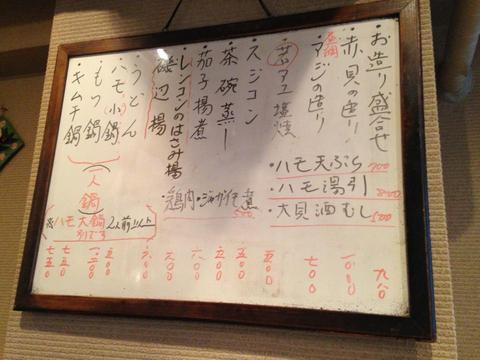 ・お造り盛合せ 九八〇
・赤貝の造り 一、〇〇〇
・アジの造り 七〇〇
・アユ塩焼 五〇〇
・スジコン 五〇〇
・茶碗蒸し 五〇〇
・茄子揚煮 六〇〇
・レンコンのはさみ揚
・磯辺揚
・うどん
・ハモ(小)鍋
・もつ鍋
・キムチ鍋 七五〇
一人鍋
ハモ大鍋 2人前以上
・ハモ天ぷら 700
・ハモ湯引 800
・大貝酒むし 500
・鶏肉・ジャガイモ煮 500